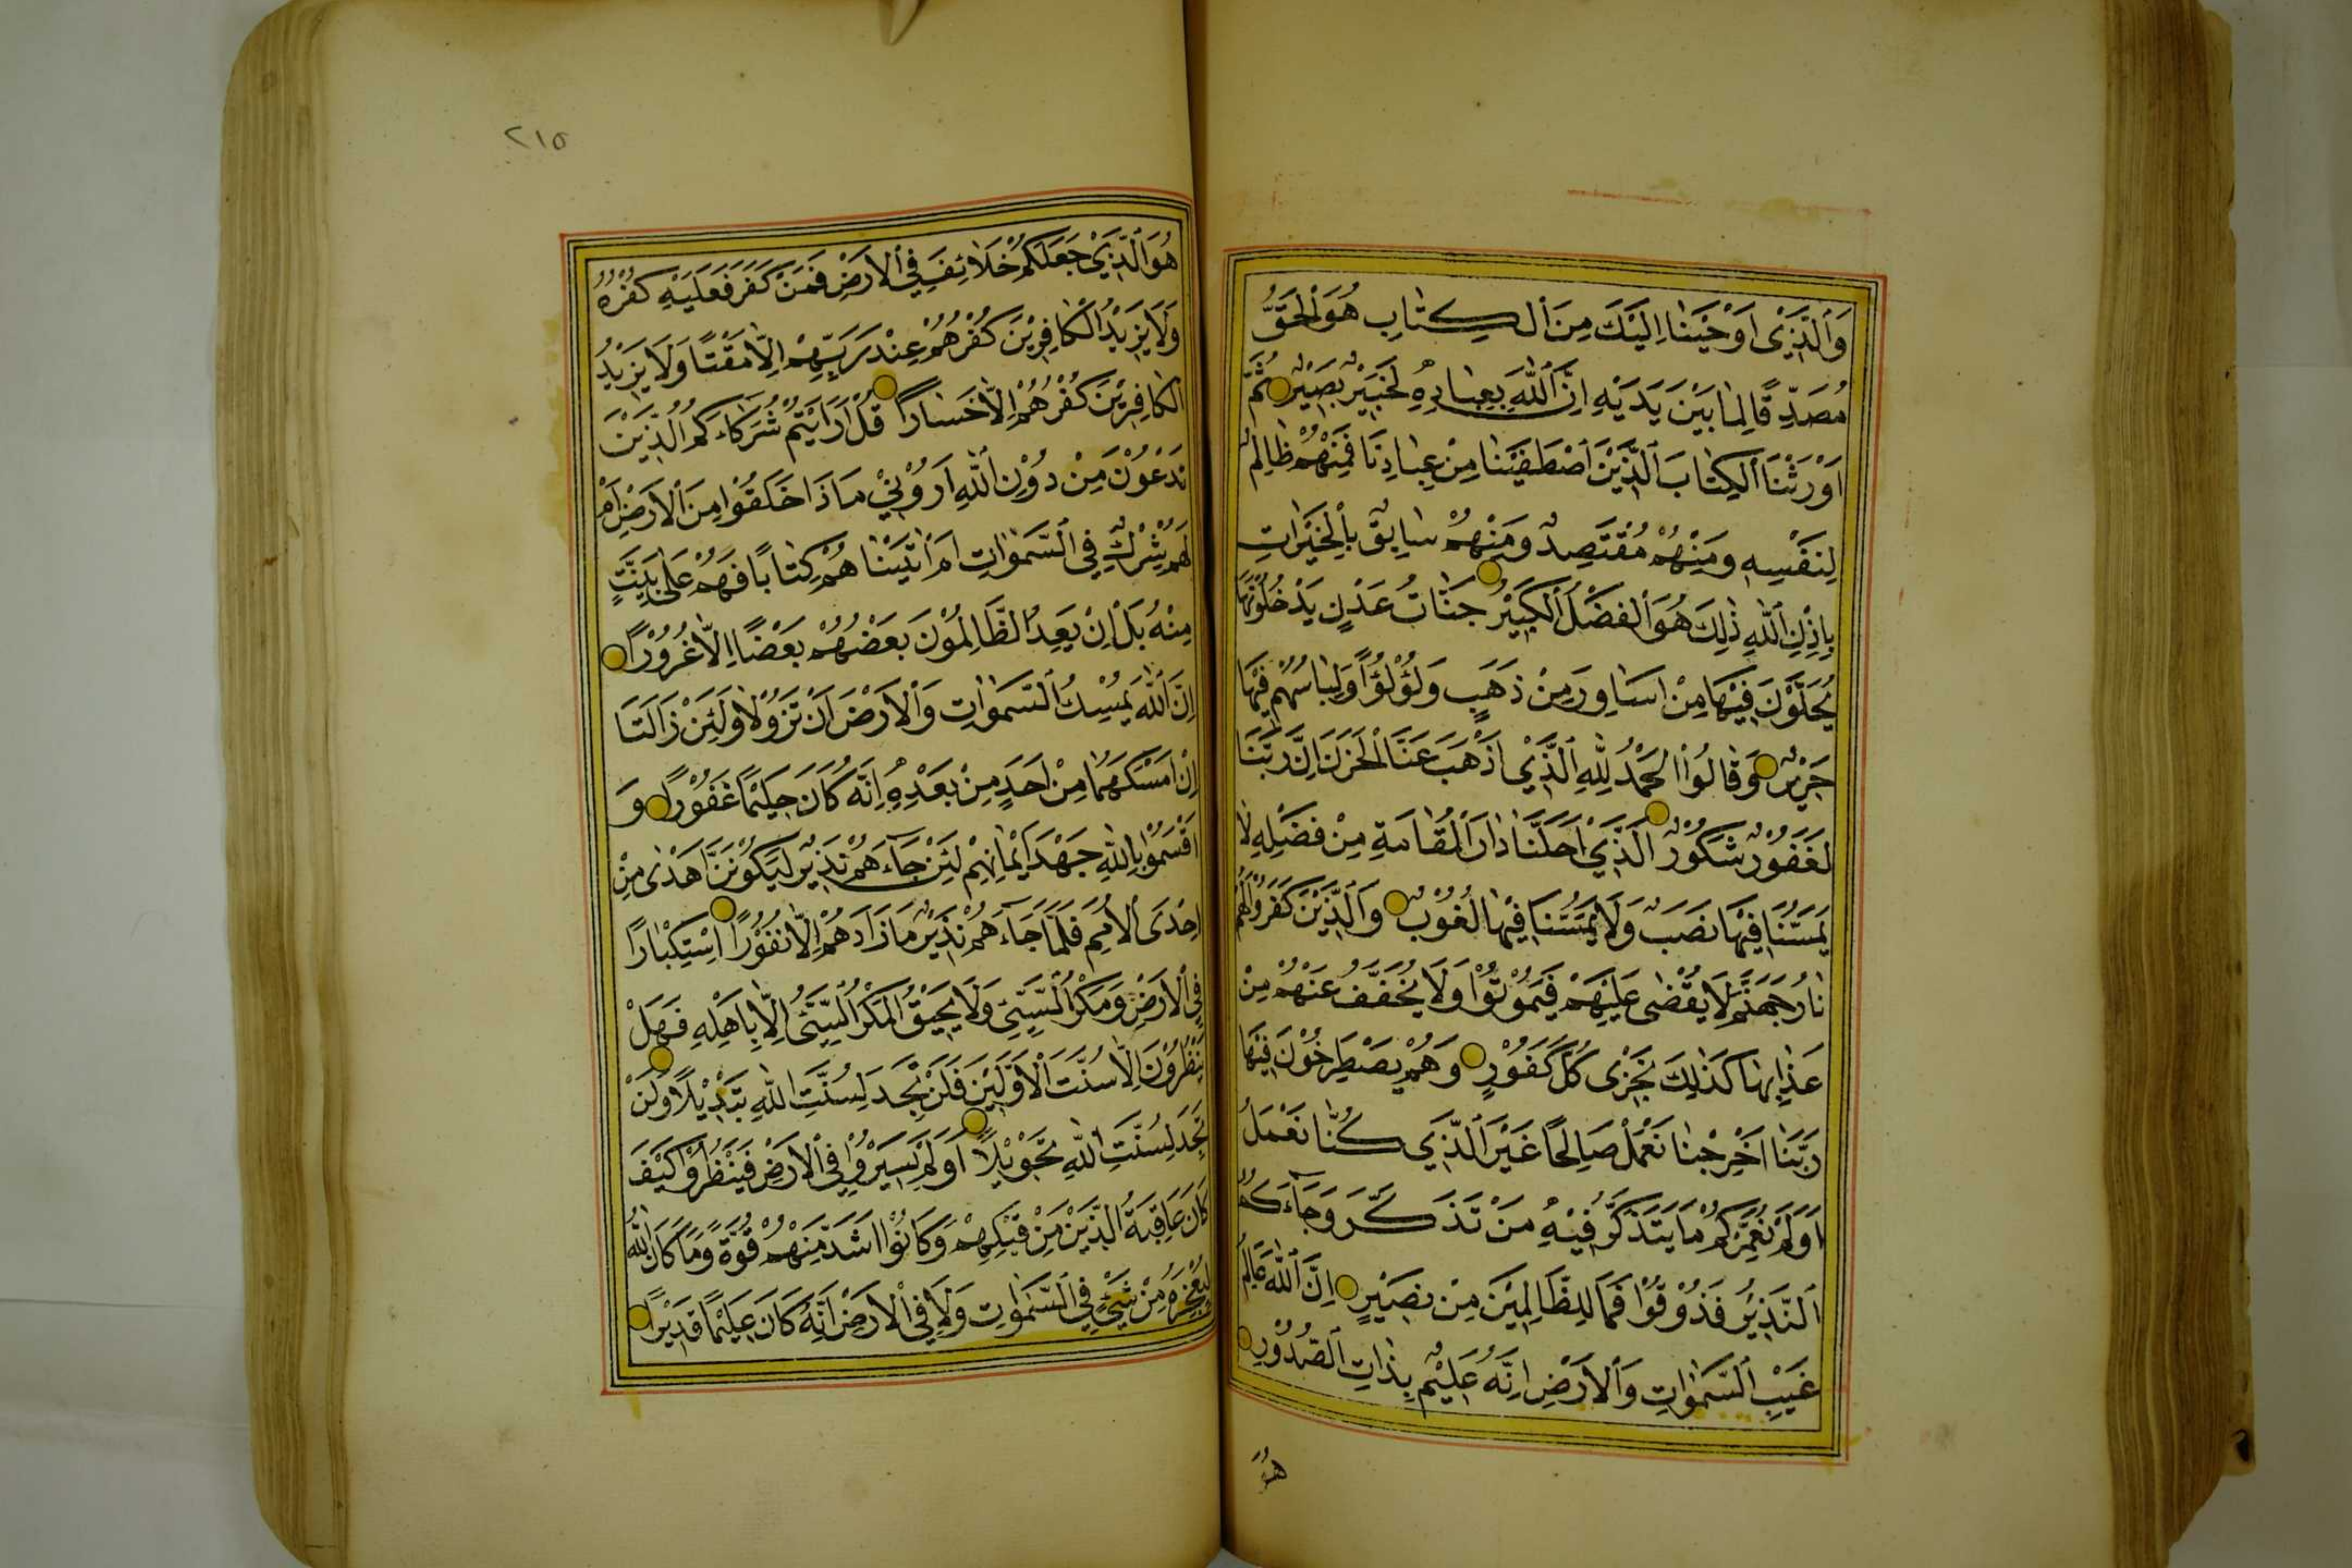 وَالَّذِي اَوْحَيْنَا اِلَيْكَ مِنَ الْكِتَابِ هُوَ الْحَقُّ
مُصَدِّقًا لِمَا بَيْنَ يَدَيْهِ اِنَّ اللّٰهَ بِعِبَادِهِ لَخَبِيْرٌ بَصِيْرٌ ثُمَّ
اَوْرَثْنَا الْكِتَابَ الَّذِيْنَ اصْطَفَيْنَا مِنْ عِبَادِنَا فَمِنْهُمْ ظَالِمٌ
لِنَفْسِهِ وَمِنْهُمْ مُقْتَصِدٌ وَمِنْهُمْ سَابِقٌ بِالْخَيْرَاتِ
بِاِذْنِ اللّٰهِ ذٰلِكَ هُوَ الْفَضْلُ الْكَبِيْرُ جَنَّاتُ عَدْنٍ يَدْخُلُوْنَهَا
يُحَلَّوْنَ فِيْهَا مِنْ اَسَاوِرَ مِنْ ذَهَبٍ وَلُؤْلُؤًا وَلِبَاسُهُمْ فِيْهَا
حَرِيْرٌ وَقَالُوْا الْحَمْدُ لِلّٰهِ الَّذِيْ اَذْهَبَ عَنَّا الْحَزَنَ اِنَّ رَبَّنَا
لَغَفُوْرٌ شَكُوْرٌ الَّذِيْ اَحَلَّنَا دَارَ الْمُقَامَةِ مِنْ فَضْلِهِ لَا
يَمَسُّنَا فِيْهَا نَصَبٌ وَلَا يَمَسُّنَا فِيْهَا لُغُوْبٌ وَالَّذِيْنَ كَفَرُوْا لَهُمْ
نَارُ جَهَنَّمَ لَا يُقْضٰى عَلَيْهِمْ فَيَمُوْتُوْا وَلَا يُخَفَّفُ عَنْهُمْ مِنْ
عَذَابِهَا كَذٰلِكَ نَجْزِى كُلَّ كَفُوْرٍ وَهُمْ يَصْطَرِخُوْنَ فِيْهَا
رَبَّنَا اَخْرِجْنَا نَعْمَلْ صَالِحًا غَيْرَ الَّذِي كُنَّا نَعْمَلُ
اَوَلَمْ نُعَمِّرْكُمْ مَا يَتَذَكَّرُ فِيْهِ مَنْ تَذَكَّرَ وَجَآءَكُمُ
النَّذِيْرُ فَذُوْقُوْا فَمَا لِلظَّالِمِيْنَ مِنْ نَصِيْرٍ اِنَّ اللّٰهَ عَالِمُ
غَيْبِ السَّمٰوَاتِ وَالْاَرْضِ اِنَّهُ عَلِيْمٌ بِذَاتِ الصُّدُوْرِ
هُوَ
٢١٥
هُوَ الَّذِيْ جَعَلَكُمْ خَلَائِفَ فِي الْاَرْضِ فَمَنْ كَفَرَ فَعَلَيْهِ كُفْرُهُ
وَلَا يَزِيْدُ الْكَافِرِيْنَ كُفْرُهُمْ عِنْدَ رَبِّهِمْ اِلَّا مَقْتًا وَلَا يَزِيْدُ
الْكَافِرِيْنَ كُفْرُهُمْ اِلَّا خَسَارًا قُلْ اَرَاَيْتُمْ شُرَكَاءَكُمُ الَّذِيْنَ
تَدْعُوْنَ مِنْ دُوْنِ اللّٰهِ اَرُوْنِيْ مَاذَا خَلَقُوْا مِنَ الْاَرْضِ اَمْ
لَهُمْ شِرْكٌ فِي السَّمٰوَاتِ اَمْ اٰتَيْنَا هُمْ كِتَابًا فَهُمْ عَلٰى بَيِّنَتٍ
مِنْهُ بَلْ اِنْ يَعِدُ الظَّالِمُوْنَ بَعْضُهُمْ بَعْضًا اِلَّا غُرُوْرًا
اِنَّ اللّٰهَ يُمْسِكُ السَّمٰوَاتِ وَالْاَرْضَ اَنْ تَزُوْلَا وَلَئِنْ زَالَتَا
اِنْ اَمْسَكَهُمَا مِنْ اَحَدٍ مِنْ بَعْدِهِ اِنَّهُ كَانَ حَلِيْمًا غَفُوْرًا وَ
اَقْسَمُوْا بِاللّٰهِ جَهْدَ اَيْمَانِهِمْ لَئِنْ جَآءَهُمْ نَذِيْرٌ لَيَكُوْنُنَّ اَهْدٰى مِنْ
اِحْدَى الْاُمَمِ فَلَمَّا جَآءَهُمْ نَذِيْرٌ مَا زَادَهُمْ اِلَّا نُفُوْرًا اِسْتِكْبَارًا
فِي الْاَرْضِ وَمَكْرَ السَّيِّئِ وَلَا يَحِيْقُ الْمَكْرُ السَّيِّئُ اِلَّا بِاَهْلِهِ فَهَلْ
يَنْظُرُوْنَ اِلَّا سُنَّتَ الْاَوَّلِيْنَ فَلَنْ تَجِدَ لِسُنَّتِ اللّٰهِ تَبْدِيْلًا وَلَنْ
تَجِدَ لِسُنَّتِ اللّٰهِ تَحْوِيْلًا اَوَلَمْ يَسِيْرُوْا فِي الْاَرْضِ فَيَنْظُرُوْا كَيْفَ
كَانَ عَاقِبَةُ الَّذِيْنَ مِنْ قَبْلِهِمْ وَكَانُوْا اَشَدَّ مِنْهُمْ قُوَّةً وَمَا كَانَ اللّٰهُ
لِيُعْجِزَهُ مِنْ شَيْءٍ فِي السَّمٰوَاتِ وَلَا فِي الْاَرْضِ اِنَّهُ كَانَ عَلِيْمًا قَدِيْرًا